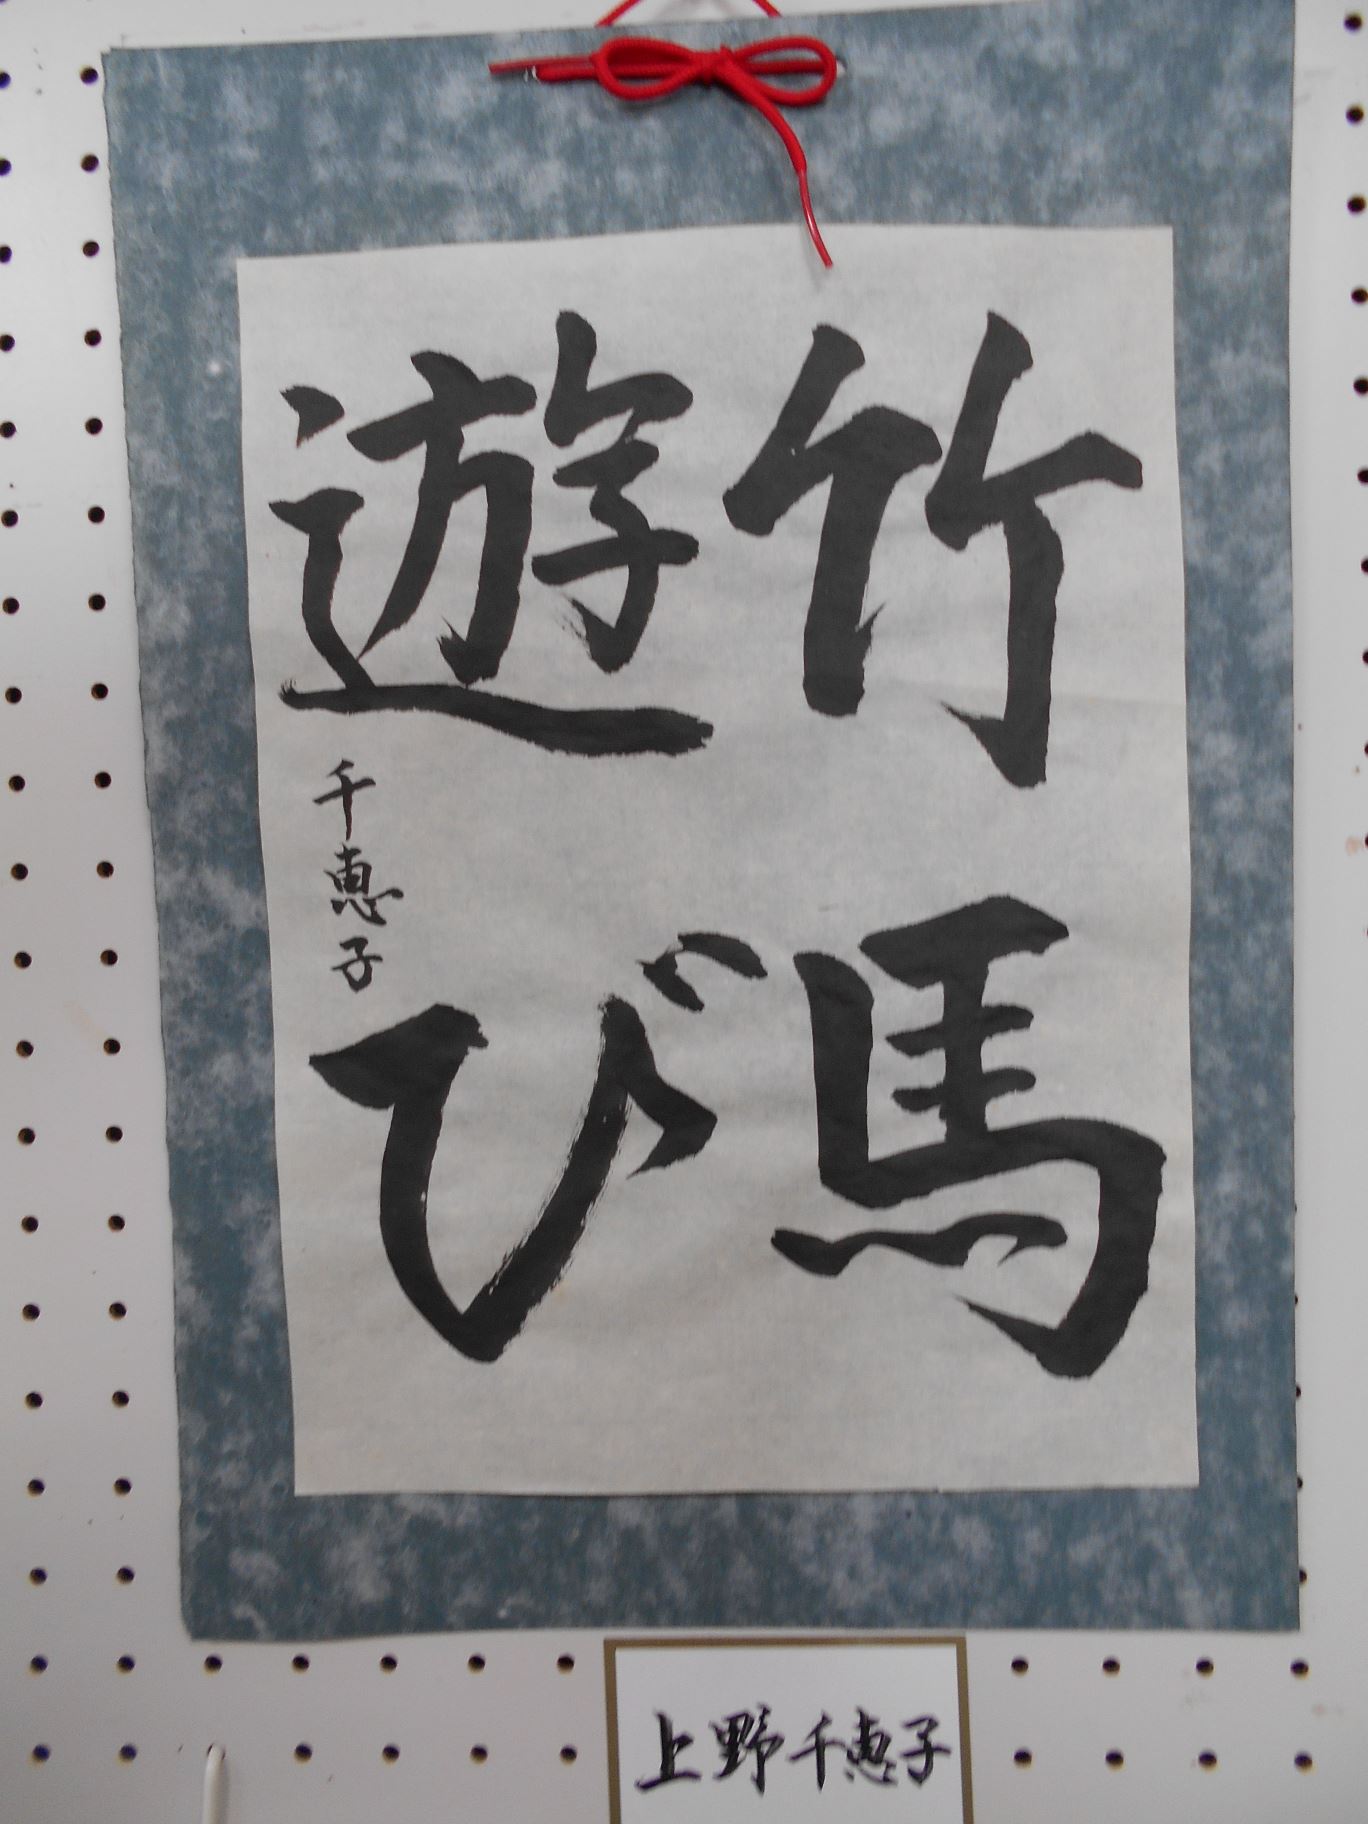 竹馬
遊び
千恵子
上野千恵子